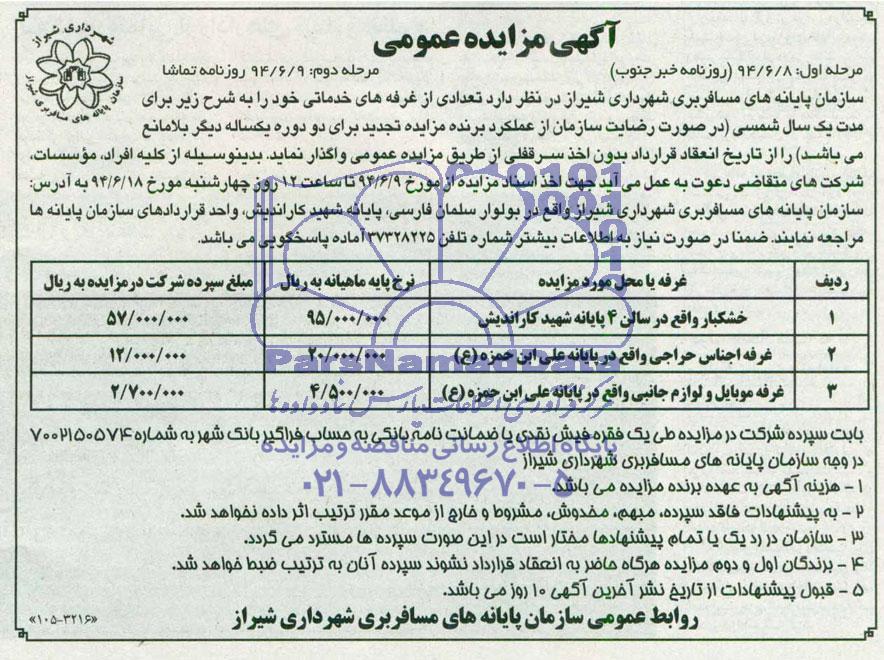 شهرداری شیراز
سازمان پایانه های مسافربری شیراز
آگهی مزایده عمومی
مرحله اول: ۹۴/۶/۸ (روزنامه خبر جنوب) مرحله دوم: ۹۴/۶/۹ روزنامه تماشا
سازمان پایانه های مسافربری شهرداری شیراز در نظر دارد تعدادی از غرفه های خدماتی خود را به شرح زیر برای
مدت یک سال شمسی (در صورت رضایت سازمان از عملکرد برنده مزایده تجدید برای دو دوره یکساله دیگر بلامانع
می باشد) را از تاریخ انعقاد قرارداد بدون اخذ سرقفلی از طریق مزایده عمومی واگذار نماید. بدینوسیله از کلیه افراد، مؤسسات،
شرکت های متقاضی دعوت به عمل می آید جهت اخذ اسناد مزایده از مورخ ۹۴/۶/۹ تا ساعت ۱۲ روز چهارشنبه مورخ ۹۴/۶/۱۸ به آدرس:
سازمان پایانه های مسافربری شهرداری شیراز واقع در بولوار سلمان فارسی، پایانه شهید کاراندیش، واحد قراردادهای سازمان پایانه ها
مراجعه نمایند. ضمنا در صورت نیاز به اطلاعات بیشتر شماره تلفن ۳۷۳۲۸۲۲۵ آماده پاسخگویی می باشد.
ردیف غرفه یا محل مورد مزایده نرخ پایه ماهیانه به ریال مبلغ سپرده شرکت در مزایده به ریال
۱ خشکبار واقع در سالن ۴ پایانه شهید کاراندیش ۹۵/۰۰۰/۰۰۰ ۵۷/۰۰۰/۰۰۰
۲ غرفه اجناس حراجی واقع در پایانه علی ابن حمزه (ع) ۲۰/۰۰۰/۰۰۰ ۱۲/۰۰۰/۰۰۰
۳ غرفه موبایل و لوازم جانبی واقع در پایانه علی ابن حمزه (ع) ۴/۵۰۰/۰۰۰ ۲/۷۰۰/۰۰۰
ParsNamadData
مرکز فرآوری اطلاعات پارس نماد داده ها
پایگاه اطلاع رسانی مناقصه و مزایده
۰۲۱-۸۸۳۴۹۶۷۰-۵
بابت سپرده شرکت در مزایده طی یک فقره فیش نقدی یا ضمانت نامه بانکی به حساب فراگیر بانک شهر به شماره ۷۰۰۲۱۵۰۵۷۴
در وجه سازمان پایانه های مسافربری شهرداری شیراز
۱ - هزینه آگهی به عهده برنده مزایده می باشد.
۲ - به پیشنهادات فاقد سپرده، مبهم، مخدوش، مشروط و خارج از موعد مقرر ترتیب اثر داده نخواهد شد.
۳ - سازمان در رد یک یا تمام پیشنهادها مختار است در این صورت سپرده ها مسترد می گردد.
۴ - برندگان اول و دوم مزایده هرگاه حاضر به انعقاد قرارداد نشوند سپرده آنان به ترتیب ضبط خواهد شد.
۵ - قبول پیشنهادات از تاریخ نشر آخرین آگهی ۱۰ روز می باشد.
روابط عمومی سازمان پایانه های مسافربری شهرداری شیراز
«۱۰۵-۳۲۱۶»